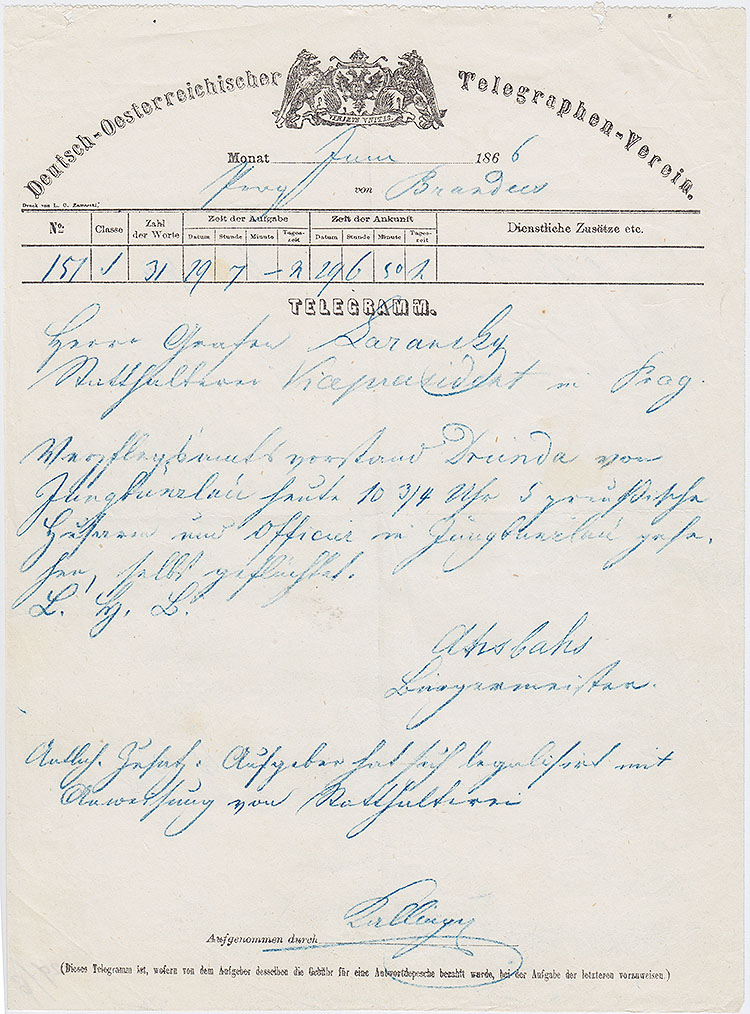 Deutsch-Oesterreichischer Telegraphen-Verein.
VIRIBVS VNITIS.
Monat Juni 1866
Prag von Brandeis
Druck von L. C. Zamarski
No. Classe Zahl der Worte Zeit der Aufgabe Zeit der Ankunft Dienstliche Zusätze etc.
Datum Stunde Minute Tageszeit Datum Stunde Minute Tageszeit
151 1 31 29 7 – 29 6 50
TELEGRAMM.
Herrn Grafen Lazansky
Statthalterei Vicepraesident in Prag.
Verpflegsamtsvorstand Drunda von
Jungbunzlau heute 10 3/4 Uhr 5 preußische
Husaren und Officier in Jungbunzlau gese-
hen, selbst geflüchtet.
Ahsbahs
Bürgermeister.
Amtlich. Zusatz: Aufgeber hat sich legalisirt mit
Anweisung von Statthalterei
Aufgenommen durch
(Dieses Telegramm ist, wofern von dem Aufgeber desselben die Gebühr für eine Antwortdepesche bezahlt wurde, bei der Aufgabe der letzteren vorzuweisen.)